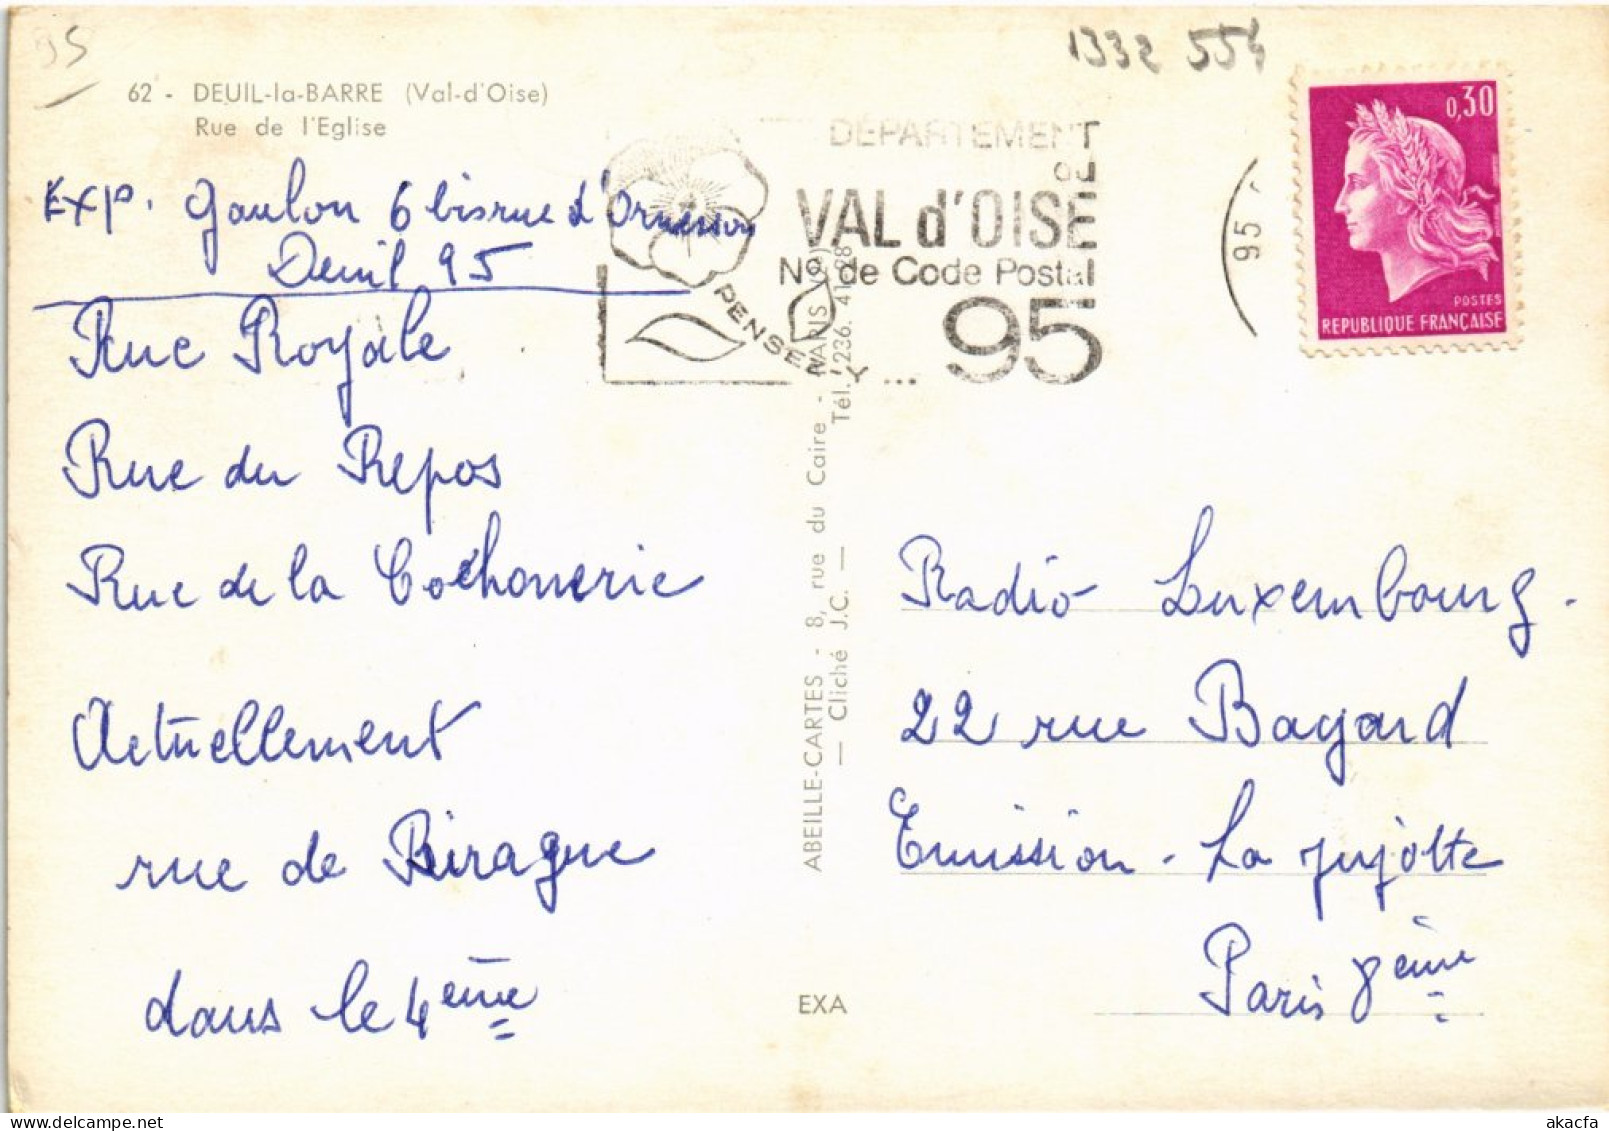 95
1332 554
62 - DEUIL-la-BARRE (Val-d'Oise)
Rue de l'Eglise
Exp. Gaulon 6 bis rue d'Ormesson
Deuil 95
Rue Royale
Rue du Repos
Rue de la Cochonerie
Actuellement
rue de Birague
dans le 4ème
DÉPARTEMENT
du
VAL d'OISE
No de Code Postal
95
PENSEZ Y ...
95
0,30
POSTES
REPUBLIQUE FRANÇAISE
ABEILLE-CARTES - 8, rue du Caire - PARIS
Tél. 236. 41-98
— Cliché J.C. —
EXA
Radio Luxembourg.
22 rue Bayard
Emission - La jujotte
Paris 8ème
akacfa